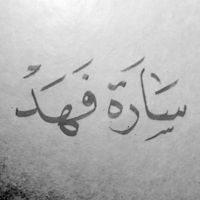 سَارَة فَهَدْ